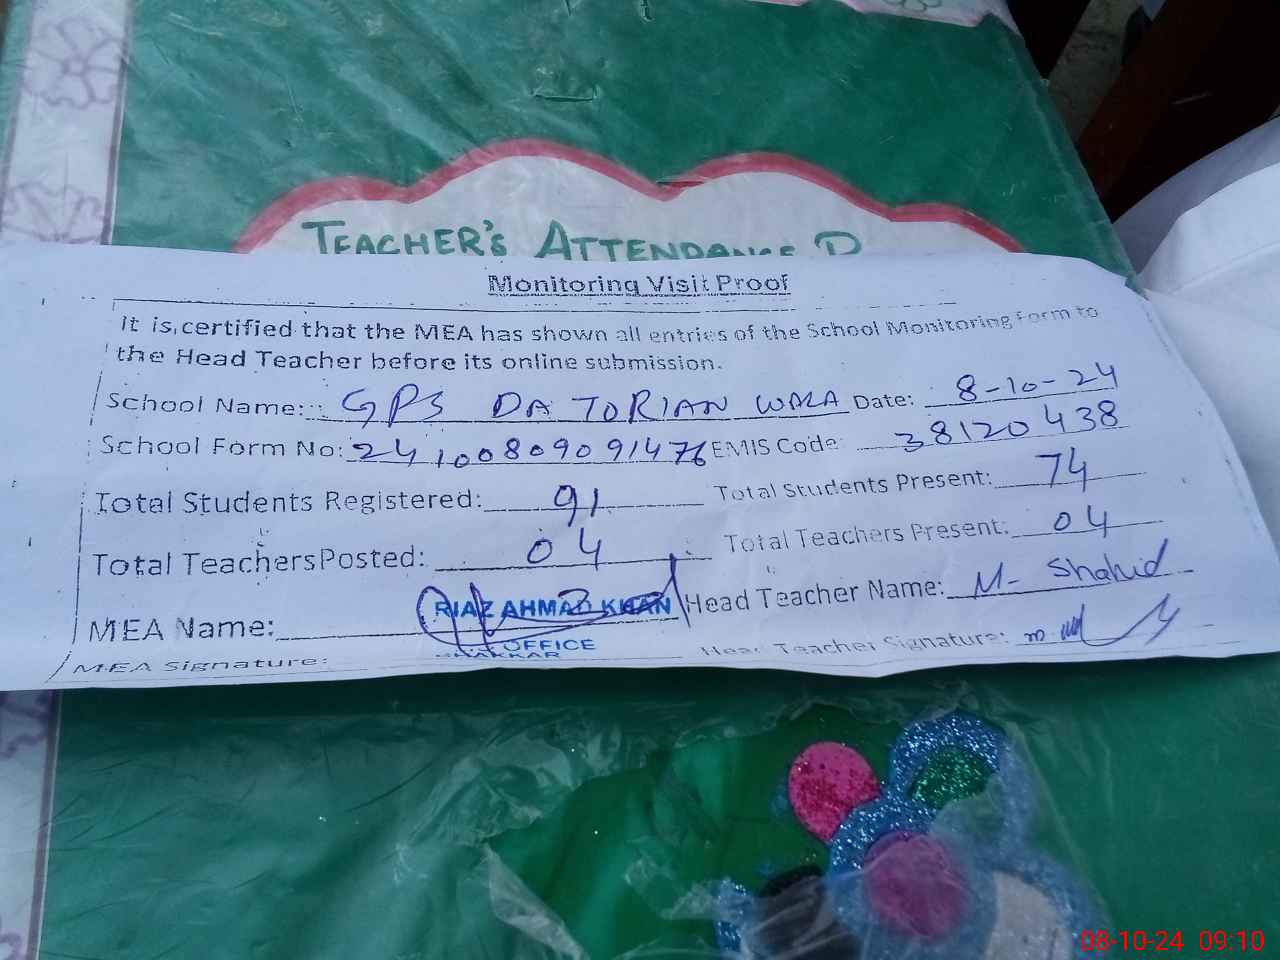 TEACHER'S ATTENDANCE
Monitoring Visit Proof
It is certified that the MEA has shown all entries of the School Monitoring Form to
the Head Teacher before its online submission.
School Name: GPS DATORIAN WALA Date: 8-10-24
School Form No: 24100809091476 EMIS Code: 38120438
Total Students Registered: 91 Total Students Present: 74
Total Teachers Posted: 04 Total Teachers Present: 04
MEA Name: RIAZ AHMAD KHAN Head Teacher Name: M- Shahid
OFFICE
BHAKKAR
MEA Signature: Head Teacher Signature:
08-10-24 09:10